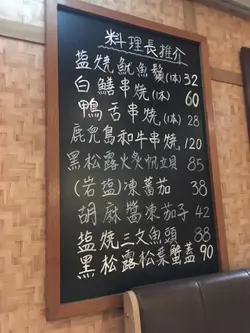 料理長推介
塩燒魷魚鬚(1本) 32
白鱔串燒(1本) 60
鴨舌串燒(1本) 28
鹿兒島和牛串燒 120
黑松露火炙帆立貝 85
(岩塩)凍蕃茄 38
胡麻醬凍茄子 42
塩燒三文魚頭 88
黑松露松葉蟹蓋 90